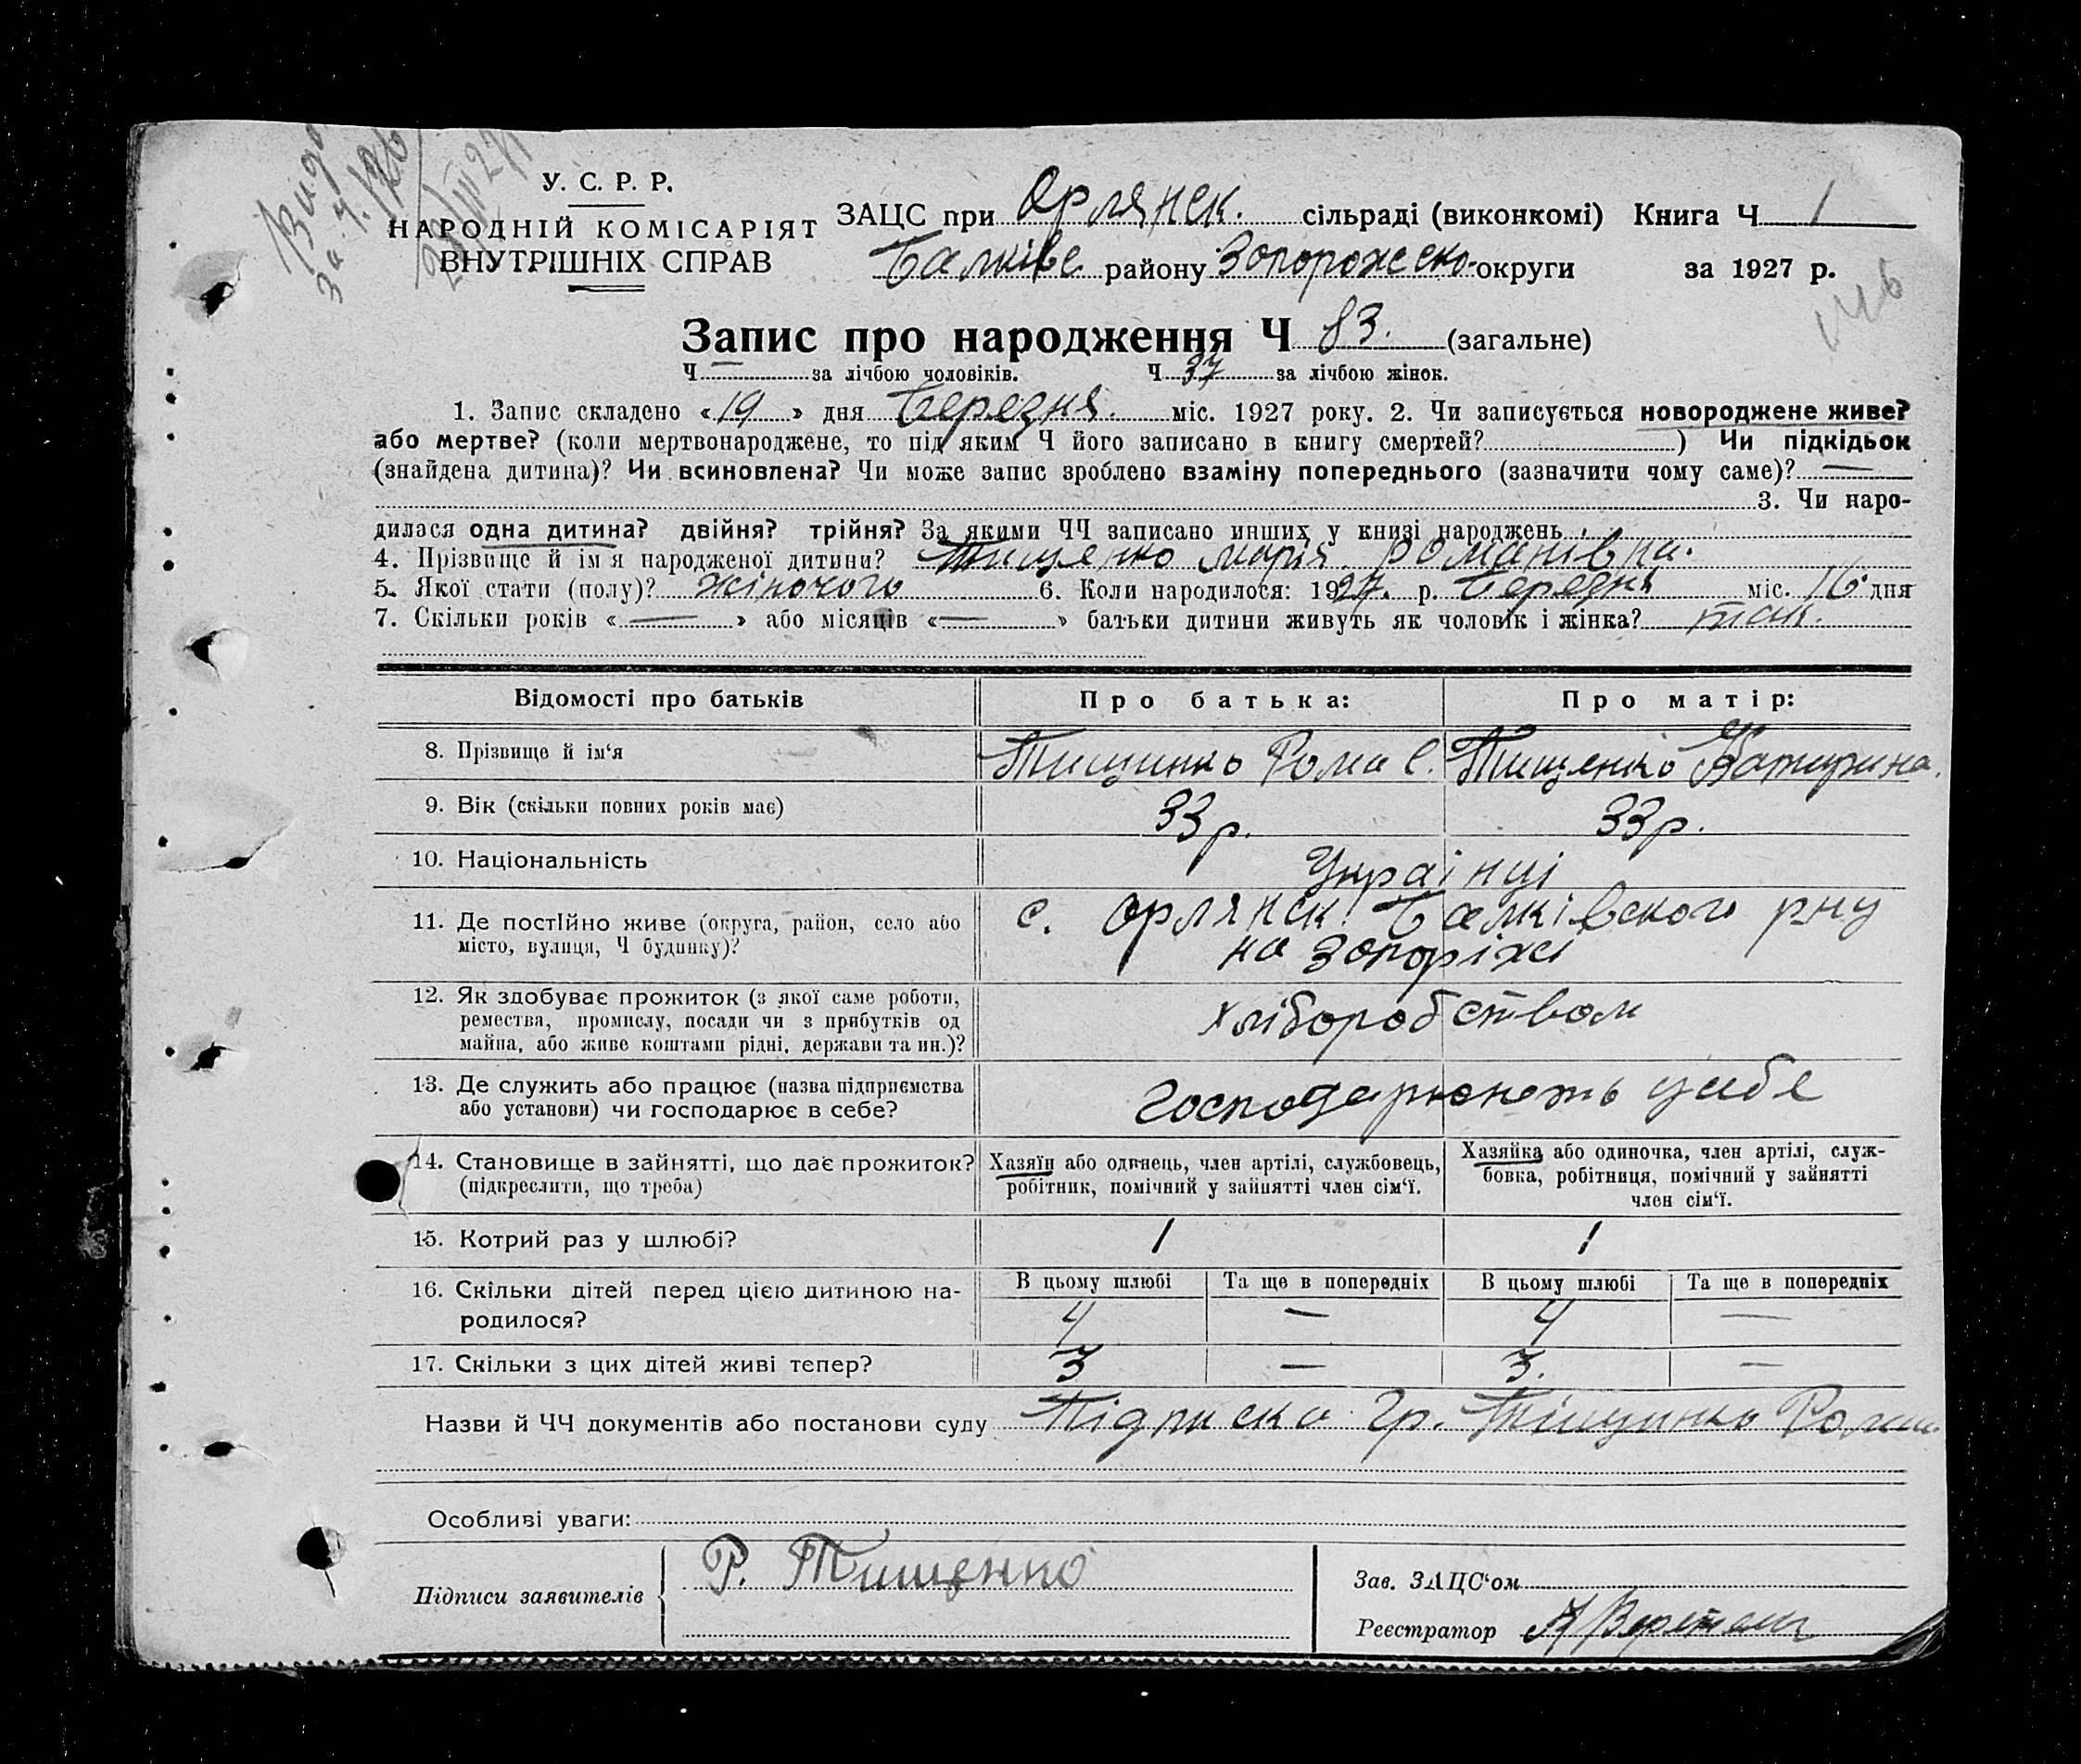 У. С. Р. Р.
НАРОДНІЙ КОМІСАРІЯТ
ВНУТРІШНІХ СПРАВ
ЗАЦС при Орлянск. сільраді (виконкомі) Книга Ч 1
Балківс районy Запорожско- округи за 1927 р.
Запис про народження Ч 83. (загальне)
Ч — за лічбою чоловіків. Ч 37 за лічбою жінок.
1. Запис складено «19» дня Березня. міс. 1927 року. 2. Чи записується новороджене живе?
або мертве? (коли мертвонароджене, то під яким Ч його записано в книгу смертей? ) Чи підкідьок
(знайдена дитина)? Чи всиновлена? Чи може запис зроблено взаміну попереднього (зазначити чому саме)? —
3. Чи наро-
дилася одна дитина? двійня? трійня? За якими ЧЧ записано инших у книзі народжень
4. Прізвище й ім'я народженої дитини? Тищенко марія романівна.
5. Якої стати (полу)? жіночого 6. Коли народилося: 1927. р. Березня міс. 16 дня
7. Скільки років «—» або місяців «—» батьки дитини живуть як чоловік і жінка? так.
Відомості про батьків Про батька: Про матір:
8. Прізвище й ім'я Тищинко Рома С. Тищенко Катирина.
9. Вік (скільки повних років має) 33 р. 33 р.
10. Національність Українці
11. Де постійно живе (округа, район, село або
місто, вулиця, Ч будинку)?
с. Орлянск Балківского рну
на Запоріжі
12. Як здобуває прожиток (з якої саме роботи,
ремества, промислу, посади чи з прибутків од
майна, або живе коштами рідні, держави та ин.)?
хліборобством
13. Де служить або працює (назва підприємства
або установи) чи господарює в себе?
Господарюють усибе
14. Становище в зайнятті, що дає прожиток?
(підкреслити, що треба)
Хазяїн або одинець, член артілі, службовець,
робітник, помічний у зайнятті член сім'ї.
Хазяйка або одиночка, член артілі, служ-
бовка, робітниця, помічний у зайнятті
член сім'ї.
15. Котрий раз у шлюбі? 1 1
16. Скільки дітей перед цією дитиною на-
родилося?
В цьому шлюбі Та ще в попередніх В цьому шлюбі Та ще в попередніх
4 — 4 —
17. Скільки з цих дітей живі тепер? 3 — 3. —
Назви й ЧЧ документів або постанови суду Підписка гр. Тіщинко Рома
Особливі уваги:
Підписи заявителів Р. Тищенко
Зав. ЗАЦС'ом
Реєстратор